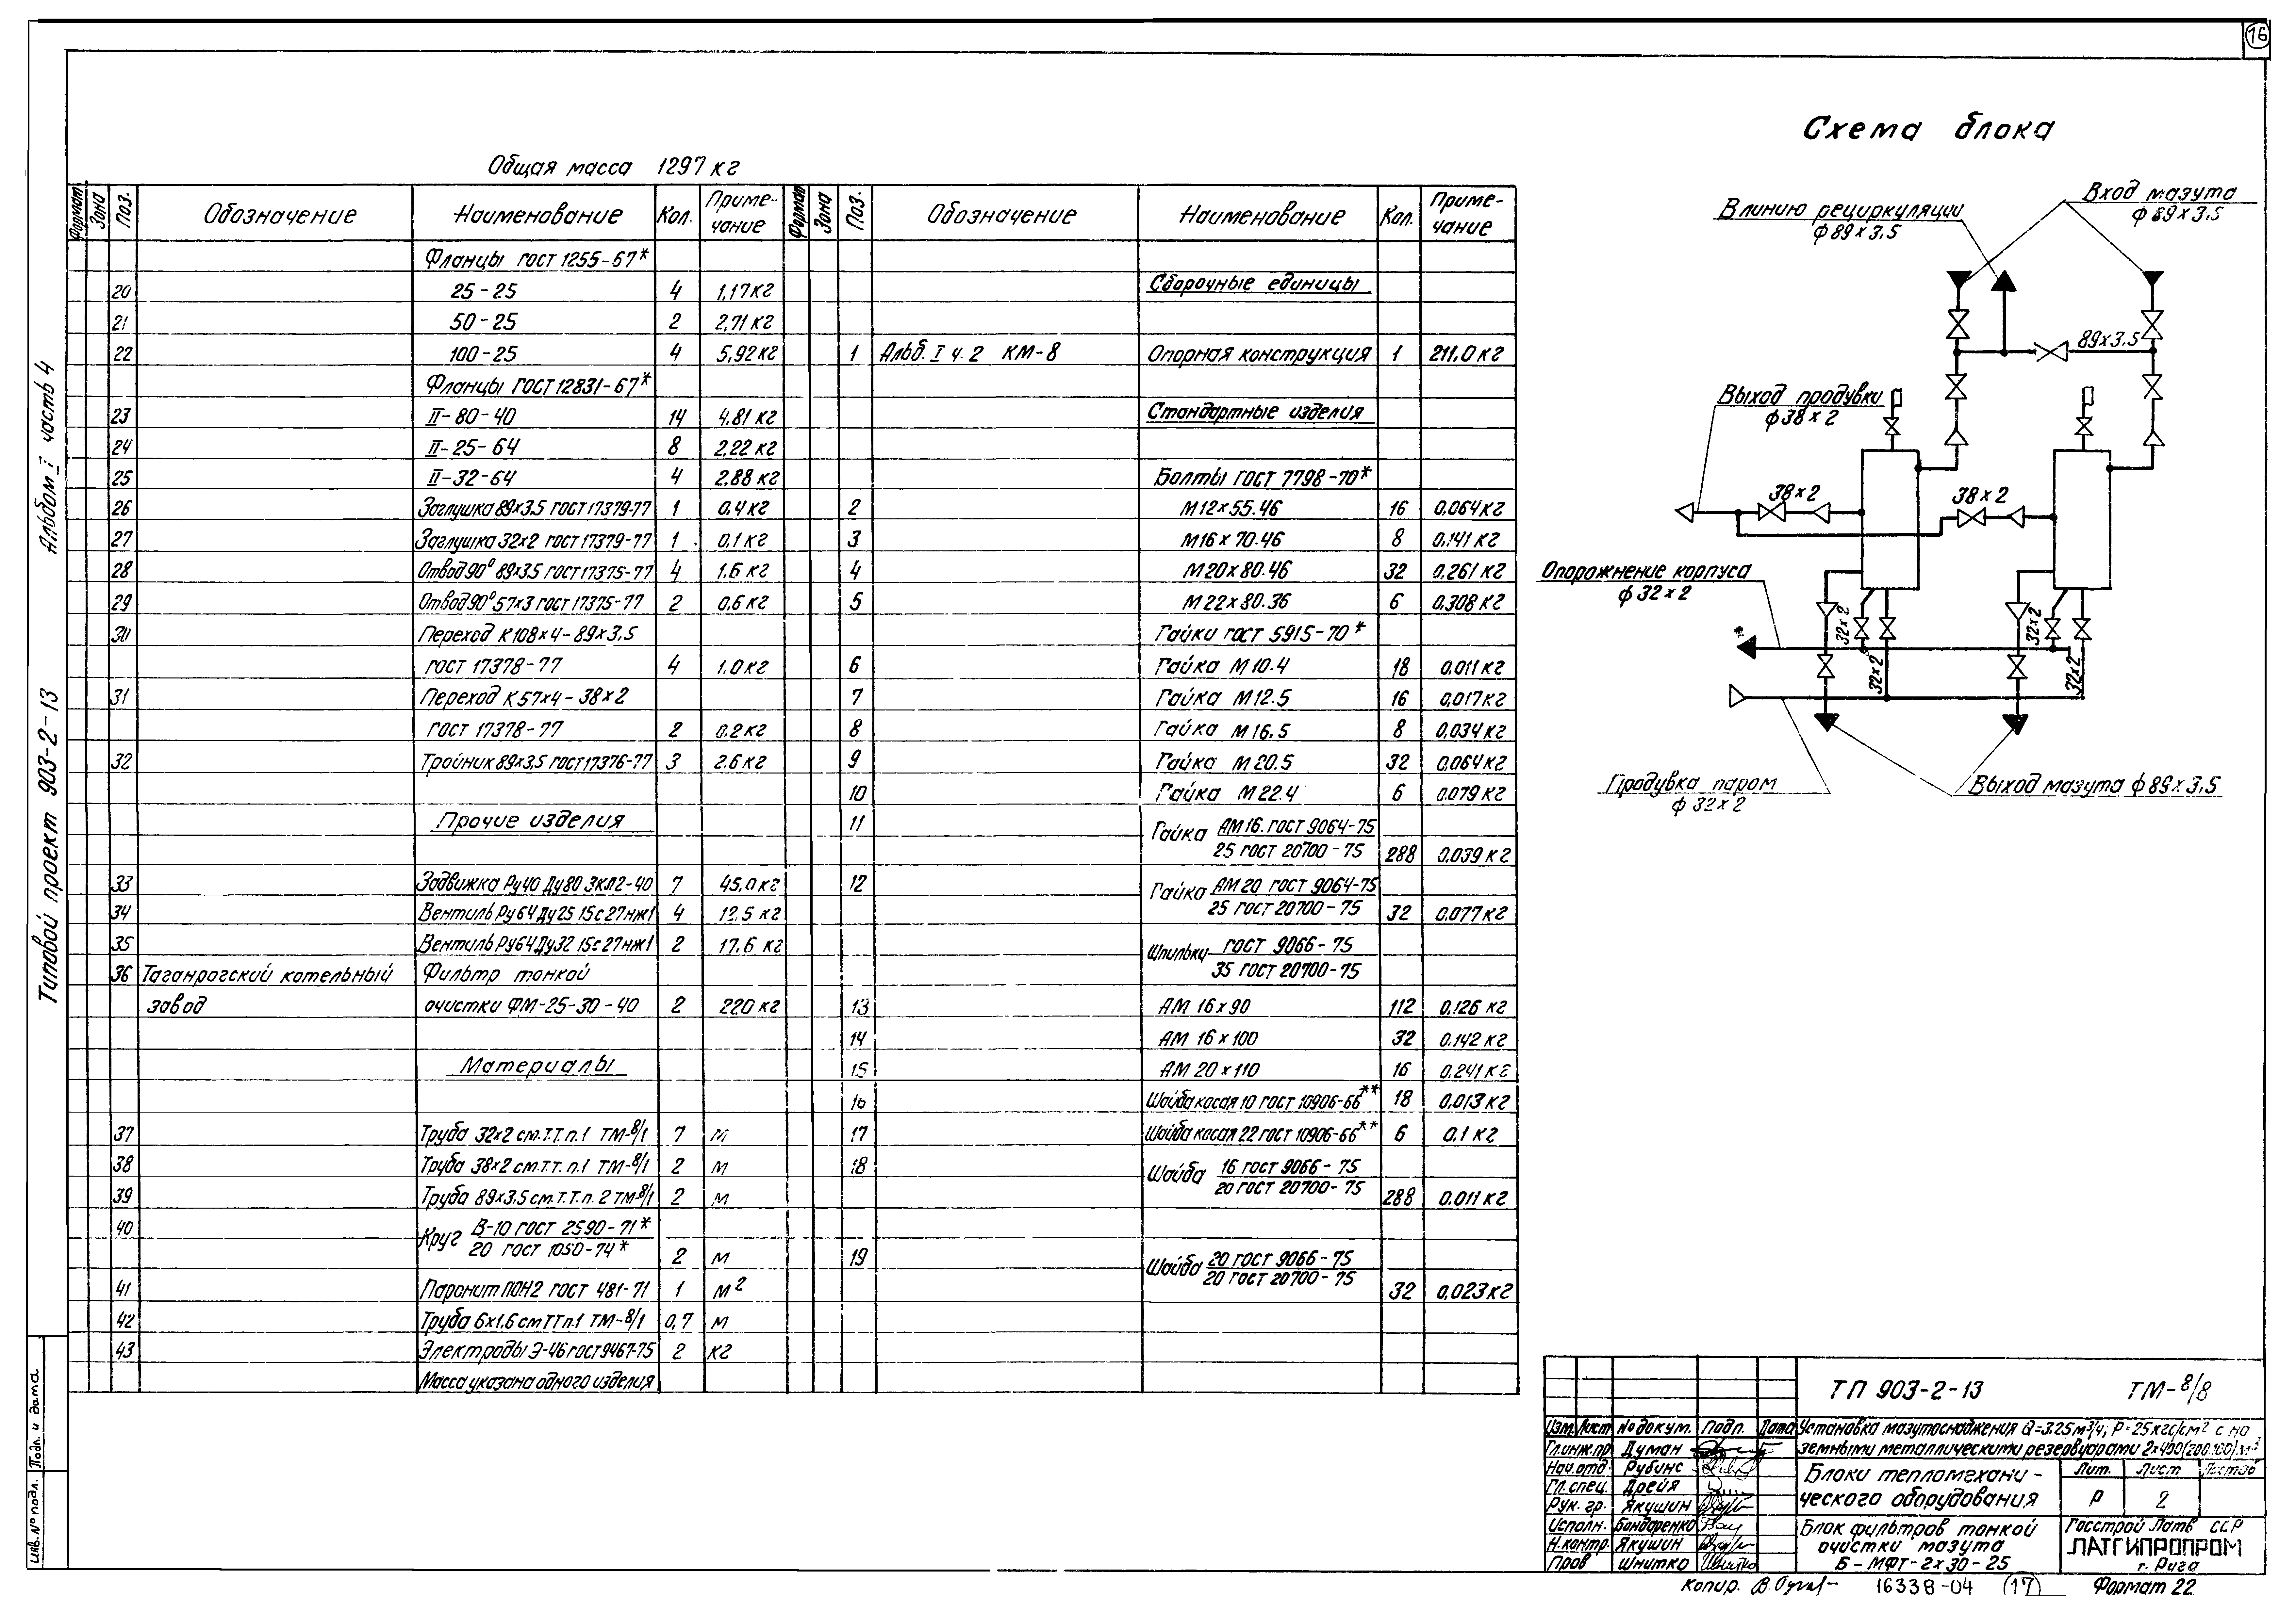 16
Общая масса 1297 кг
Формат Зона Поз. Обозначение Наименование Кол. Примечание
Фланцы ГОСТ 1255-67*
20 25-25 4 1,17 кг
21 50-25 2 2,71 кг
22 100-25 4 5,92 кг
Фланцы ГОСТ 12831-67*
23 II-80-40 14 4,81 кг
24 II-25-64 8 2,22 кг
25 II-32-64 4 2.88 кг
26 Заглушка 89х3.5 ГОСТ 17379-77 1 0,4 кг
27 Заглушка 32х2 ГОСТ 17379-77 1 0.1 кг
28 Отвод 90° 89х3.5 ГОСТ 17375-77 4 1.6 кг
29 Отвод 90° 57х3 ГОСТ 17375-77 2 0,6 кг
30 Переход К 108х4-89х3,5
ГОСТ 17378-77 4 1.0 кг
31 Переход К 57х4-38х2
ГОСТ 17378-77 2 0.2 кг
32 Тройник 89х3,5 ГОСТ 17376-77 3 2.6 кг
Прочие изделия
33 Задвижка Ру40 Ду80 ЗКЛ2-40 7 45.0 кг
34 Вентиль Ру64 Ду25 15с27нж1 4 12.5 кг
35 Вентиль Ру64 Ду32 15с27нж1 2 17.6 кг
36 Таганрогский котельный Фильтр тонкой
завод очистки ФМ-25-30-40 2 220 кг
Материалы
37 Труба 32х2 см.т.т.п.1 ТМ-8/1 7 м
38 Труба 38х2 см.т.т.п.1 ТМ-8/1 2 м
39 Труба 89х3.5 см.т.т.п.2 ТМ-8/1 2 м
40 Круг В-10 ГОСТ 2590-71*
20 ГОСТ 1050-74* 2 м
41 Паронит ПОН2 ГОСТ 481-71 1 м2
42 Труба 6х1.6 см ТТ п.1 ТМ-8/1 0,7 м
43 Электроды Э-46 ГОСТ 9467-75 2 кг
Масса указана одного изделия
Формат Зона Поз. Обозначение Наименование Кол. Примечание
Сборочные единицы
1 Альб. I ч. 2 КМ-8 Опорная конструкция 1 211.0 кг
Стандартные изделия
Болты ГОСТ 7798-70*
2 М12х55.46 16 0,064 кг
3 М16х70.46 8 0.141 кг
4 М20х80.46 32 0,261 кг
5 М22х80.36 6 0,308 кг
Гайки ГОСТ 5915-70*
6 Гайка М10.4 18 0.011 кг
7 Гайка М12.5 16 0,017 кг
8 Гайка М16.5 8 0,034 кг
9 Гайка М20.5 32 0,064 кг
10 Гайка М22.4 6 0.079 кг
11 Гайка АМ16. ГОСТ 9064-75
25 ГОСТ 20700-75 288 0.039 кг
12 Гайка АМ20 ГОСТ 9064-75
25 ГОСТ 20700-75 32 0,077 кг
Шпильки ГОСТ 9066-75
35 ГОСТ 20700-75
13 АМ 16х90 112 0,126 кг
14 АМ 16х100 32 0.142 кг
15 АМ 20х110 16 0.241 кг
16 Шайба косая 10 ГОСТ 10906-66** 18 0,013 кг
17 Шайба косая 22 ГОСТ 10906-66** 6 0.1 кг
18 Шайба 16 ГОСТ 9066-75
20 ГОСТ 20700-75 288 0.011 кг
19 Шайба 20 ГОСТ 9066-75
20 ГОСТ 20700-75 32 0,023 кг
Схема блока
В линию рециркуляции
ф 89х3.5
Вход мазута
ф 89х3,5
89х3.5
Выход продувки
ф 38х2
38х2
38х2
Опорожнение корпуса
ф 32х2
32х2
32х2
32х2
32х2
Продувка паром
ф 32х2
Выход мазута ф 89х3,5
Альбом I часть 4
Типовой проект 903-2-13
Подп. и дата
Инв. № подл.
ТП 903-2-13 ТМ-8/8
Изм. Лист № докум. Подп. Дата
Гл.инж.пр. Думан
Нач.отд. Рубинс
Гл.спец. Дрейя
Рук. гр. Якушин
Исполн. Бондаренко
Н.контр. Якушин
Пров Шнитко
Установка мазутоснабжения Q=3.25 м3/ч; Р=25 кгс/см2 с на
земными металлическими резервуарами 2х400(200.100) м3
Блоки тепломехани-
ческого оборудования
Лит. Лист Листов
Р 2
Блок фильтров тонкой
очистки мазута
Б-МФТ-2х30-25
Госстрой Латв ССР
ЛАТГИПРОПРОМ
г. Рига
Копир. 16338-04 (17) Формат 22